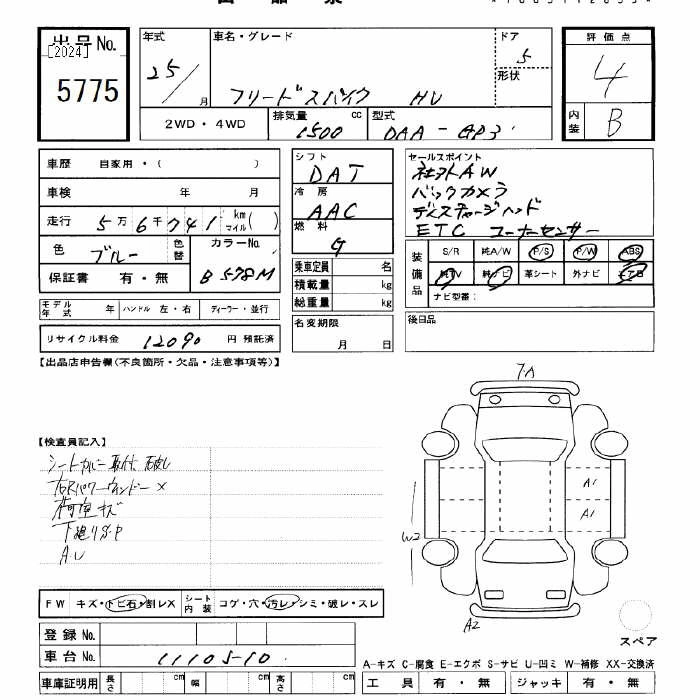 出品No.
[2024]
5775
年式
25/
月
車名・グレード
フリードスパイク HV
ドア
5
形状
評価点
4
内装
B
2WD・4WD
排気量 cc
1500
型式
DAA-GP3
車歴 自家用・( )
車検 年 月
走行 5万6千741 km マイル( )
色 ブルー
色替
カラーNo.
B578M
保証書 有・無
モデル年式 年
ハンドル 左・右
ディーラー・並行
リサイクル料金 12090 円 預託済
シフト
DAT
冷房
AAC
燃料
G
乗車定員 名
積載量 kg
総重量 kg
名変期限
月 日
セールスポイント
社外AW
バックカメラ
ディスチャージヘッド
ETC コーナーセンサー
装備品
S/R 純AW P/S P/W ABS
純TV 純ナビ 革シート 外ナビ エアB
ナビ型番:
後日品
【出品店申告欄(不良箇所・欠品・注意事項等)】
【検査員記入】
シートカバー取付
右Rパワーウィンドー×
荷室キズ
下廻りS・P
A.U
7.A
A1
A1
W2
A2
スペア
FW キズ・トビ石・割レX
シート内装 コゲ・穴・汚レ・シミ・破レ・スレ
登録No.
車台No. 11105-10
車庫証明用 長さ cm 幅 cm 高さ cm
A-キズ C-腐食 E-エクボ S-サビ U-凹ミ W-補修 XX-交換済
工具 有・無 ジャッキ 有・無